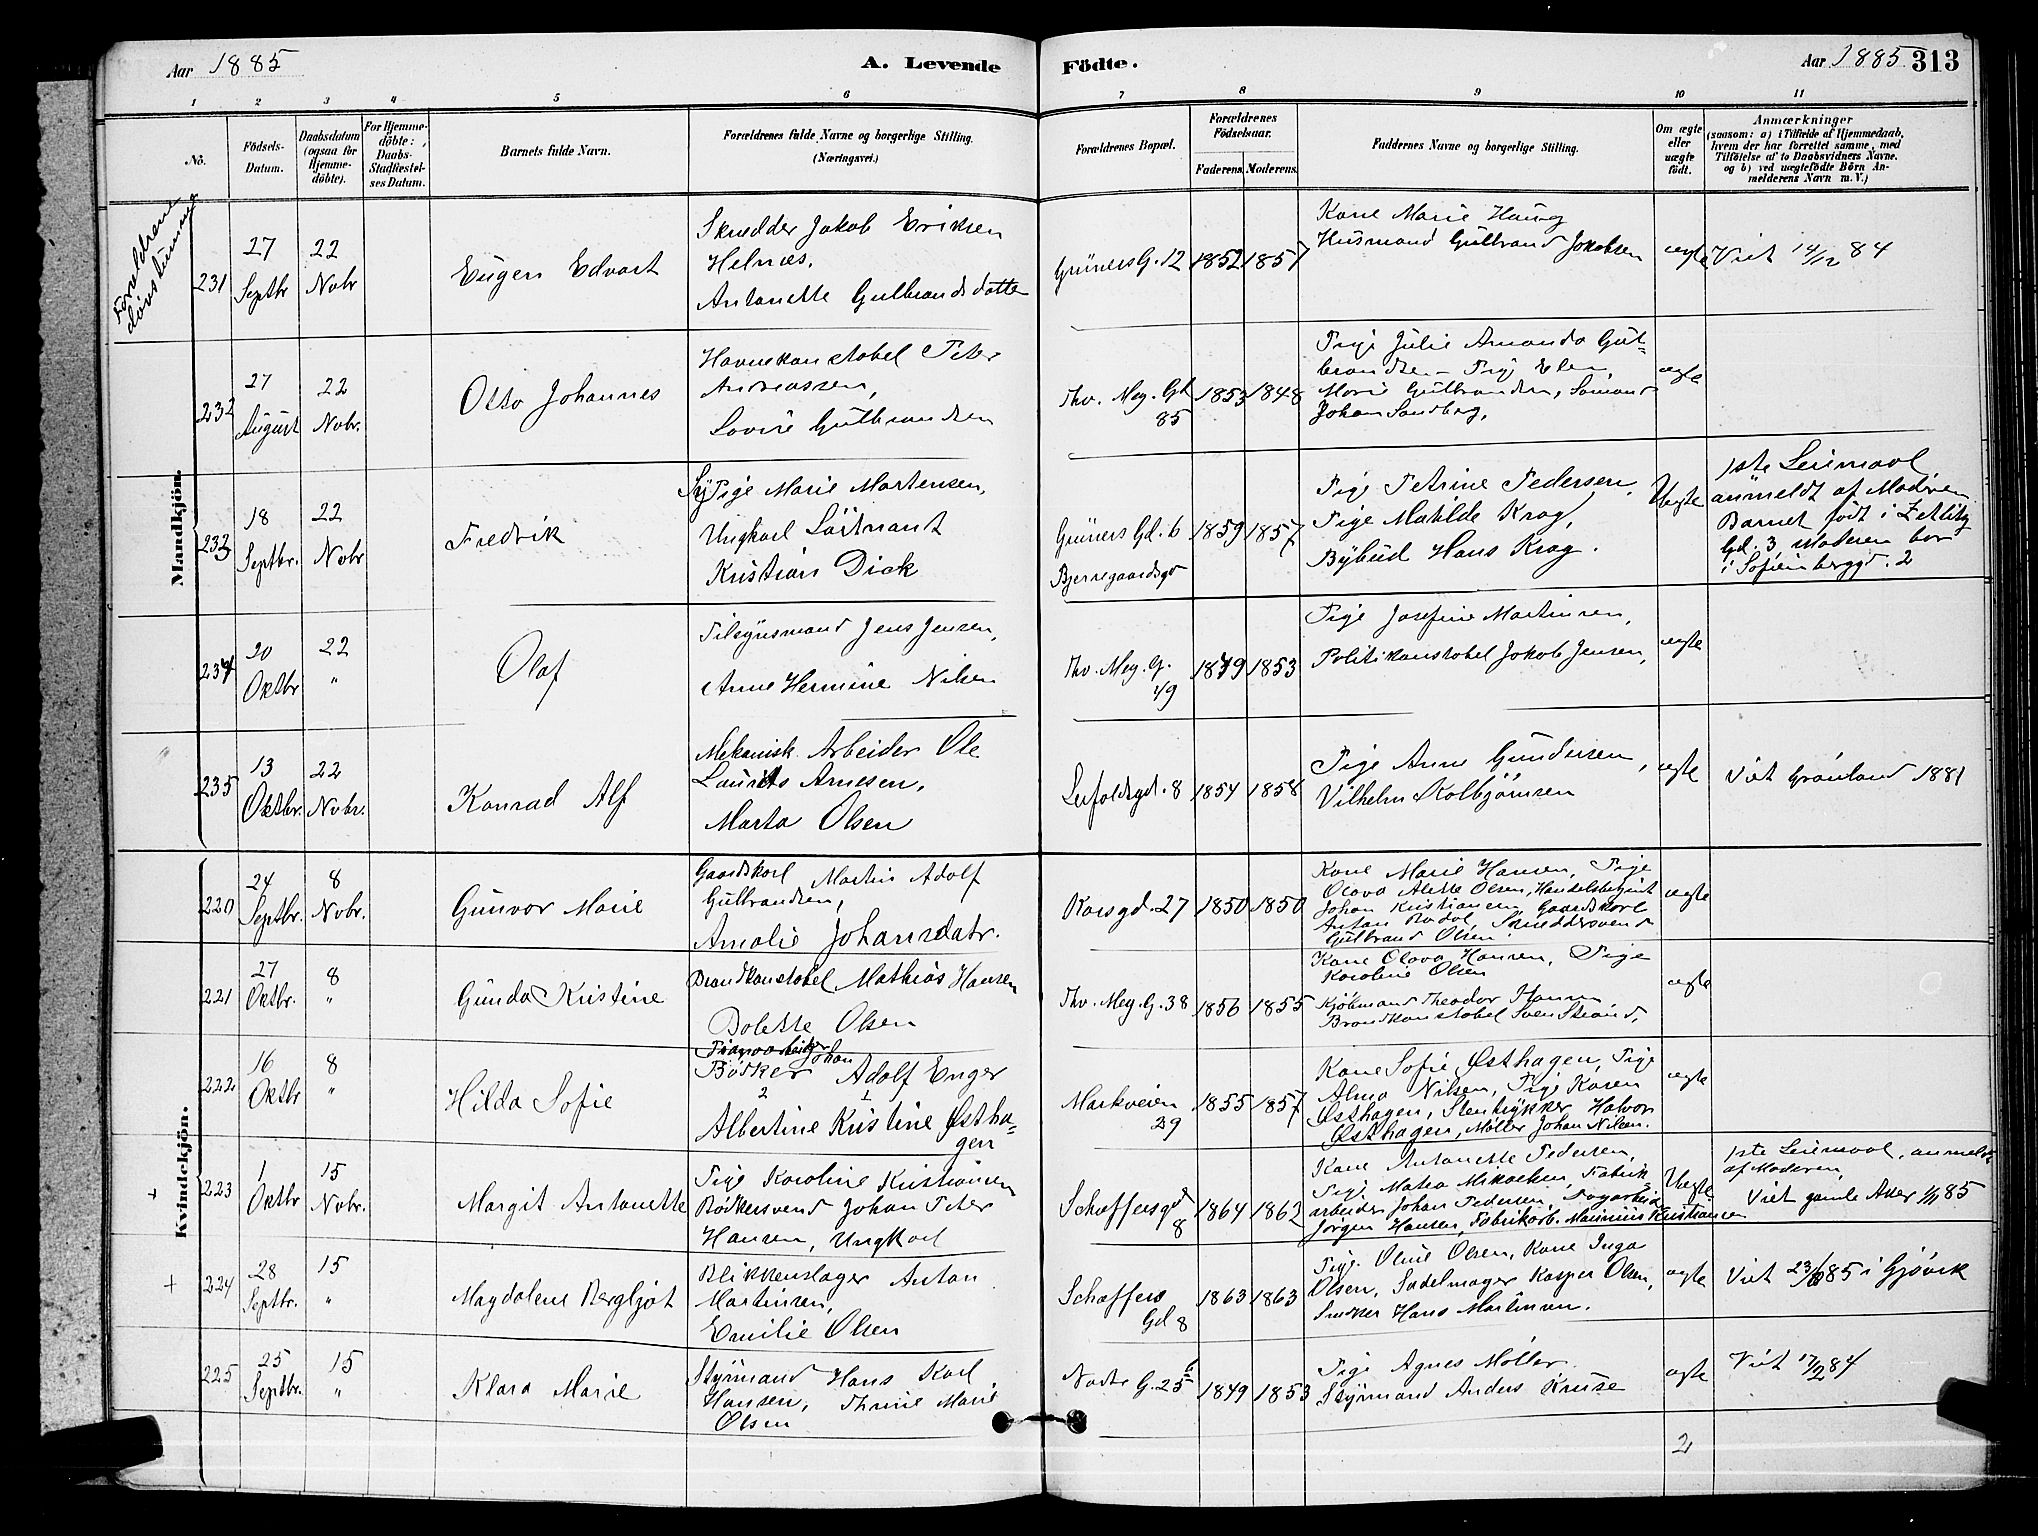 Aar 1885
A. Levende
Födte.
Aar 1885
313
1 2 3 4 5 6 7 8 9 10 11
No.
Födsels-
Datum.
Daabsdatum
(ogsaa for
Hjemme-
döbte).
For Hjemme-
döbte:
Daabs-
Stadfæstel-
ses Datum.
Barnets fulde Navn.
Forældrenes fulde Navne og borgerlige Stilling.
(Næringsvei.)
Forældrenes Bopæl.
Forældrenes
Födselsaar.
Faderens.
Moderens.
Faddernes Navne og borgerlige Stilling.
Om ægte
eller
uægte
födt.
Anmærkninger
(saasom: a) i Tilfælde af Hjemmedaab,
hvem der har forrettet samme, med
Tilföielse af to Daabsvidners Navne.
og b) ved uægtefödte Börn An-
melderens Navn m. V.)
Forældrene
døvstumme
Mandkjön.
231
27
Septbr
22
Nobr
Eugen Edvart
Skrædder Jakob Eriksen
Helnæs.
Antonette Gulbrandsdatter
Grüners G. 12
1852
1857
Kone Marie Haug
Husmand Gulbrand Jakobsen
ægte
Viet 14/12 84
232
27
August
22
Nobr.
Otto Johannes
Havnekonstabel Peter
Andreassen,
Lovise Gulbrandsen
Thv. Mey. Gd
85
1853
1848
Pige Julie Amanda Gul=
brandsen - Pige Elen
Marie Gulbrandsen, Sømand
Johan Sandberg,
ægte
233
18
Septbr.
22
Nobr
Fredrik
Sypige Marie Martensen,
Ungkarl Löitnant
Kristian Dick
Grüners Gd. 6
Bjerregaardsgd
1859
1857
Pige Petrine Pedersen,
Pige Matilde Krag,
Bybud Hans Krag.
Uægte
1ste Leiermaal
anmeldt af Moderen
Barnet født i Zetlitz
Gd. 3, Moderen bor
i Sofienberggd. 2
234
20
Oktbr
22
"
Olaf
Tilsynsmand Jens Jensen,
Anne Hermine Nilsen
Thv. Mey. G.
49
1849
1853
Pige Josefine Martinsen,
Politikonstabel Jakob Jensen,
ægte
235
13
Oktbr.
22
Nobr.
Konrad Alf
Mekanisk Arbeider Ole
Laurits Arnesen,
Marta Olsen
Leufoldsgd. 8
1854
1858
Pige Anne Gundersen,
Vilhelm Kolbjørnsen
ægte
Viet Grønland 1881
Kvindekjön.
220
24
Septbr.
8
Nobr.
Gunvor Marie
Gaardskarl Martin Adolf
Gulbrandsen,
Amalie Johansdatr.
Korsgd. 27
1850
1850
Kone Marie Hansen, Pige
Olava Alette Olsen, Handelsbetjent
Johan Kristiansen, Gaardskarl
Anton Rodal, Skræddersvend
Gulbrand Olsen
ægte
221
27
Oktbr.
8
"
Gunda Kristine
Brandkonstabel Mathias Hansen
Bolette Olsen
Thv. Mey. G. 38
1856
1855
Kone Olava Hansen, Pige
Karoline Olsen
Kjøbmand Theodor Hansen
Brandkonstabel Sven Strand,
ægte
222
16
Oktbr
8
"
Hilda Sofie
Johan
Bødker Adolf Enger
2 1
Albertine Kristine Østha=
gen
Markveien
29
1855
1857
Kone Sofie Østhagen, Pige
Alma Nilsen, Pige Karen
Østhagen, Stentrykker Halvor
Østhagen, Møller Johan Nilsen.
ægte
+
223
1
Oktbr
15
Nobr.
Margit Antonette
Pige Karoline Kristiansen
Bødkersvend Johan Peter
Hansen, Ungkarl
Schæffersgd
8
1864
1862
Kone Antonette Pedersen,
Pige Matea Mikaelsen, Fabrik=
arbeider Johan Pedersen,
Jørgen Hansen, Fabrikarb. Kristiansen
Uægte
1ste Leiermaal, anmeldt
af Moderen
Viet gamle Aker 1/11 85
+
224
28
Septbr.
15
"
Magdalene Bergljot
Blikkenslager Anton
Martinsen,
Emilie Olsen
Schæffers
Gd 8
1863
1863
Pige Oline Olsen, Kone Inga
Olsen, Sadelmager Kasper Olsen,
Snedker Hans Martinsen.
ægte
Viet 23/ 85 i Gjøvik
225
25
Septbr.
15
"
Klara Marie
Styrmand Hans Karl
Hansen, Thrine Marie
Olsen
Nodre G. 25 b
1849
1853
Pige Agnes Møller
Styrmand Anders Kruse
ægte
Viet 17/2 84
2